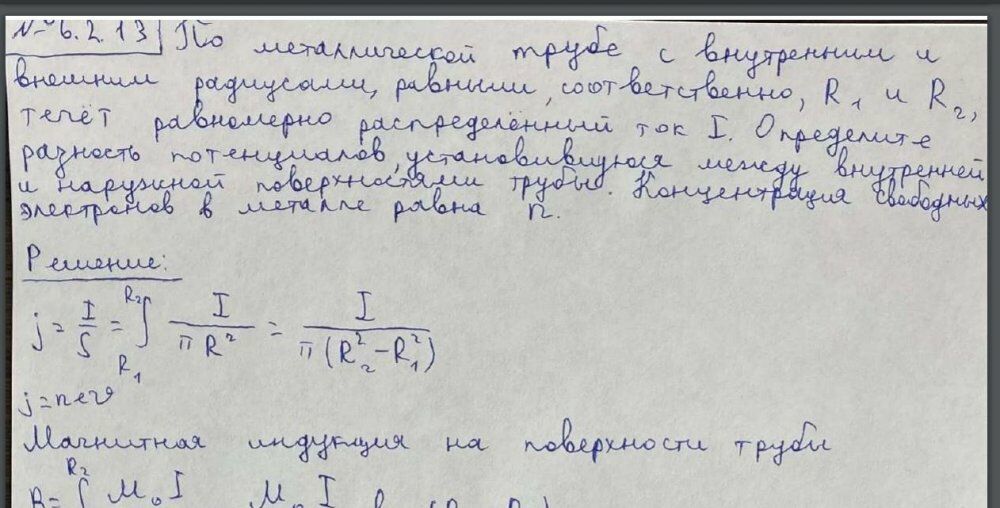 № 6.2.13 По металлической трубе с внутренним и
внешним радиусами, равными, соответственно, R₁ и R₂,
течёт равномерно распределённый ток I. Определите
разность потенциалов, установившуюся между внутренней
и наружной поверхностями трубы. Концентрация свободных
электронов в металле равна n.
Решение:
j = I/S = ∫_{R₁}^{R₂} I/(πR²) = I/(π(R₂²-R₁²))
j = neϑ
Магнитная индукция на поверхности трубы
B = ∫^{R₂} μ₀I μ₀I